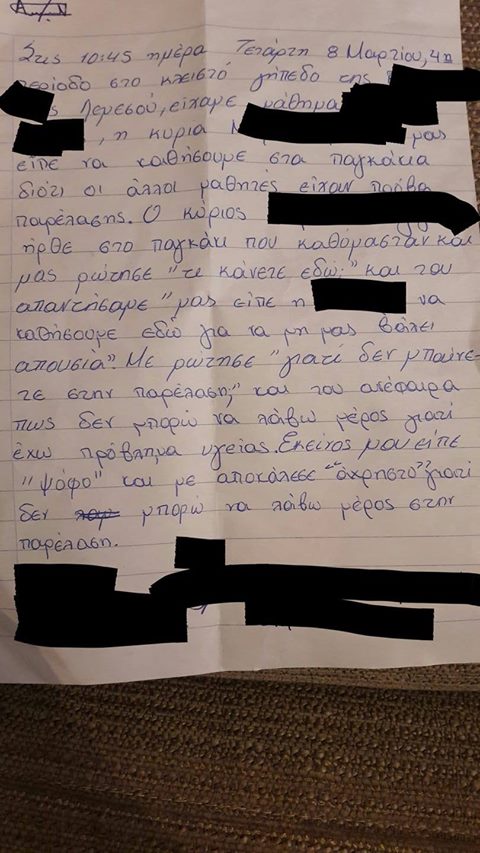 Στις 10:45 ημέρα Τετάρτη 8 Μαρτίου, 4η
περίοδο στο κλειστό γήπεδο της
Λεμεσού, είχαμε μάθημα
, η κυρία μας
είπε να καθήσουμε στα παγκάκια
διότι οι άλλοι μαθητές είχαν πρόβα
παρέλασης. Ο κύριος
ήρθε στο παγκάκι που καθόμασταν και
μας ρώτησε "τι κάνετε εδώ;" και του
απαντήσαμε "μας είπε η να
καθήσουμε εδώ για να μη μας βάλει
απουσία". Με ρώτησε "γιατί δεν μπαίνε-
τε στην παρέλαση;" και του ανέφερα
πως δεν μπορώ να λάβω μέρος γιατί
έχω πρόβλημα υγείας. Εκείνος μου είπε
"ψόφο" και με αποκάλεσε "άχρηστο" γιατί
δεν μπορώ να λάβω μέρος στην
παρέλαση.